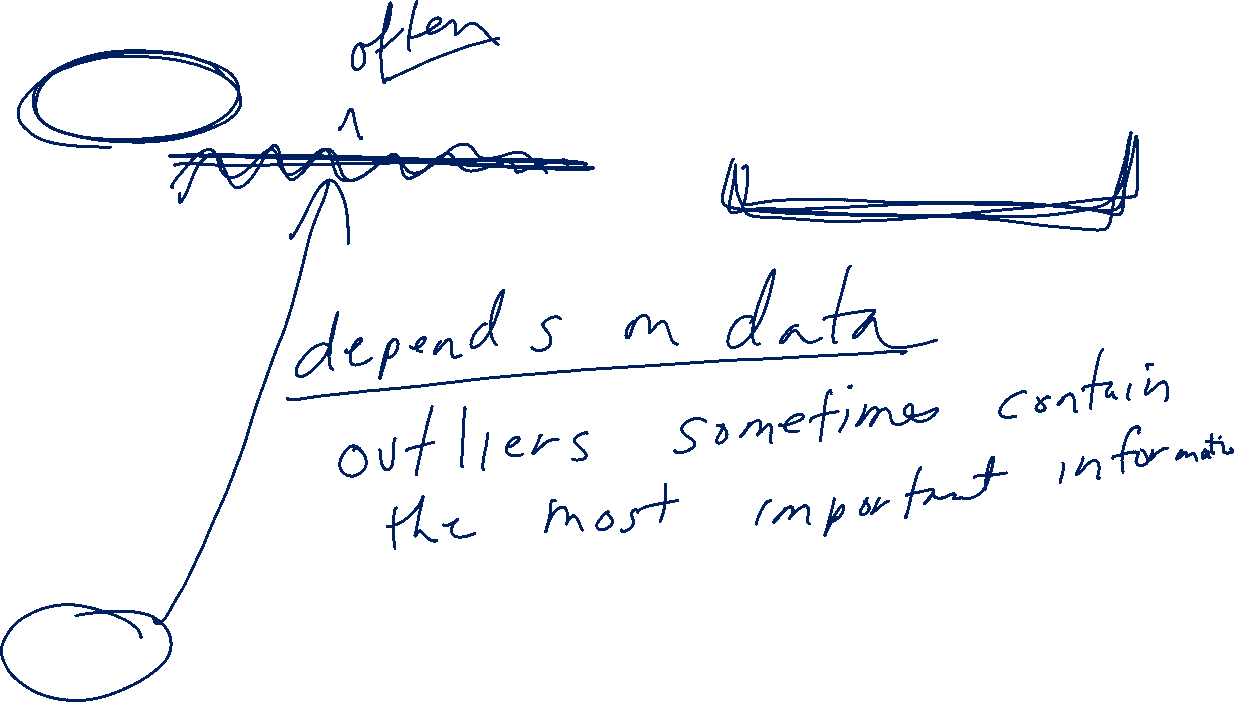 often
depends on data
outliers sometimes contain
the most important information